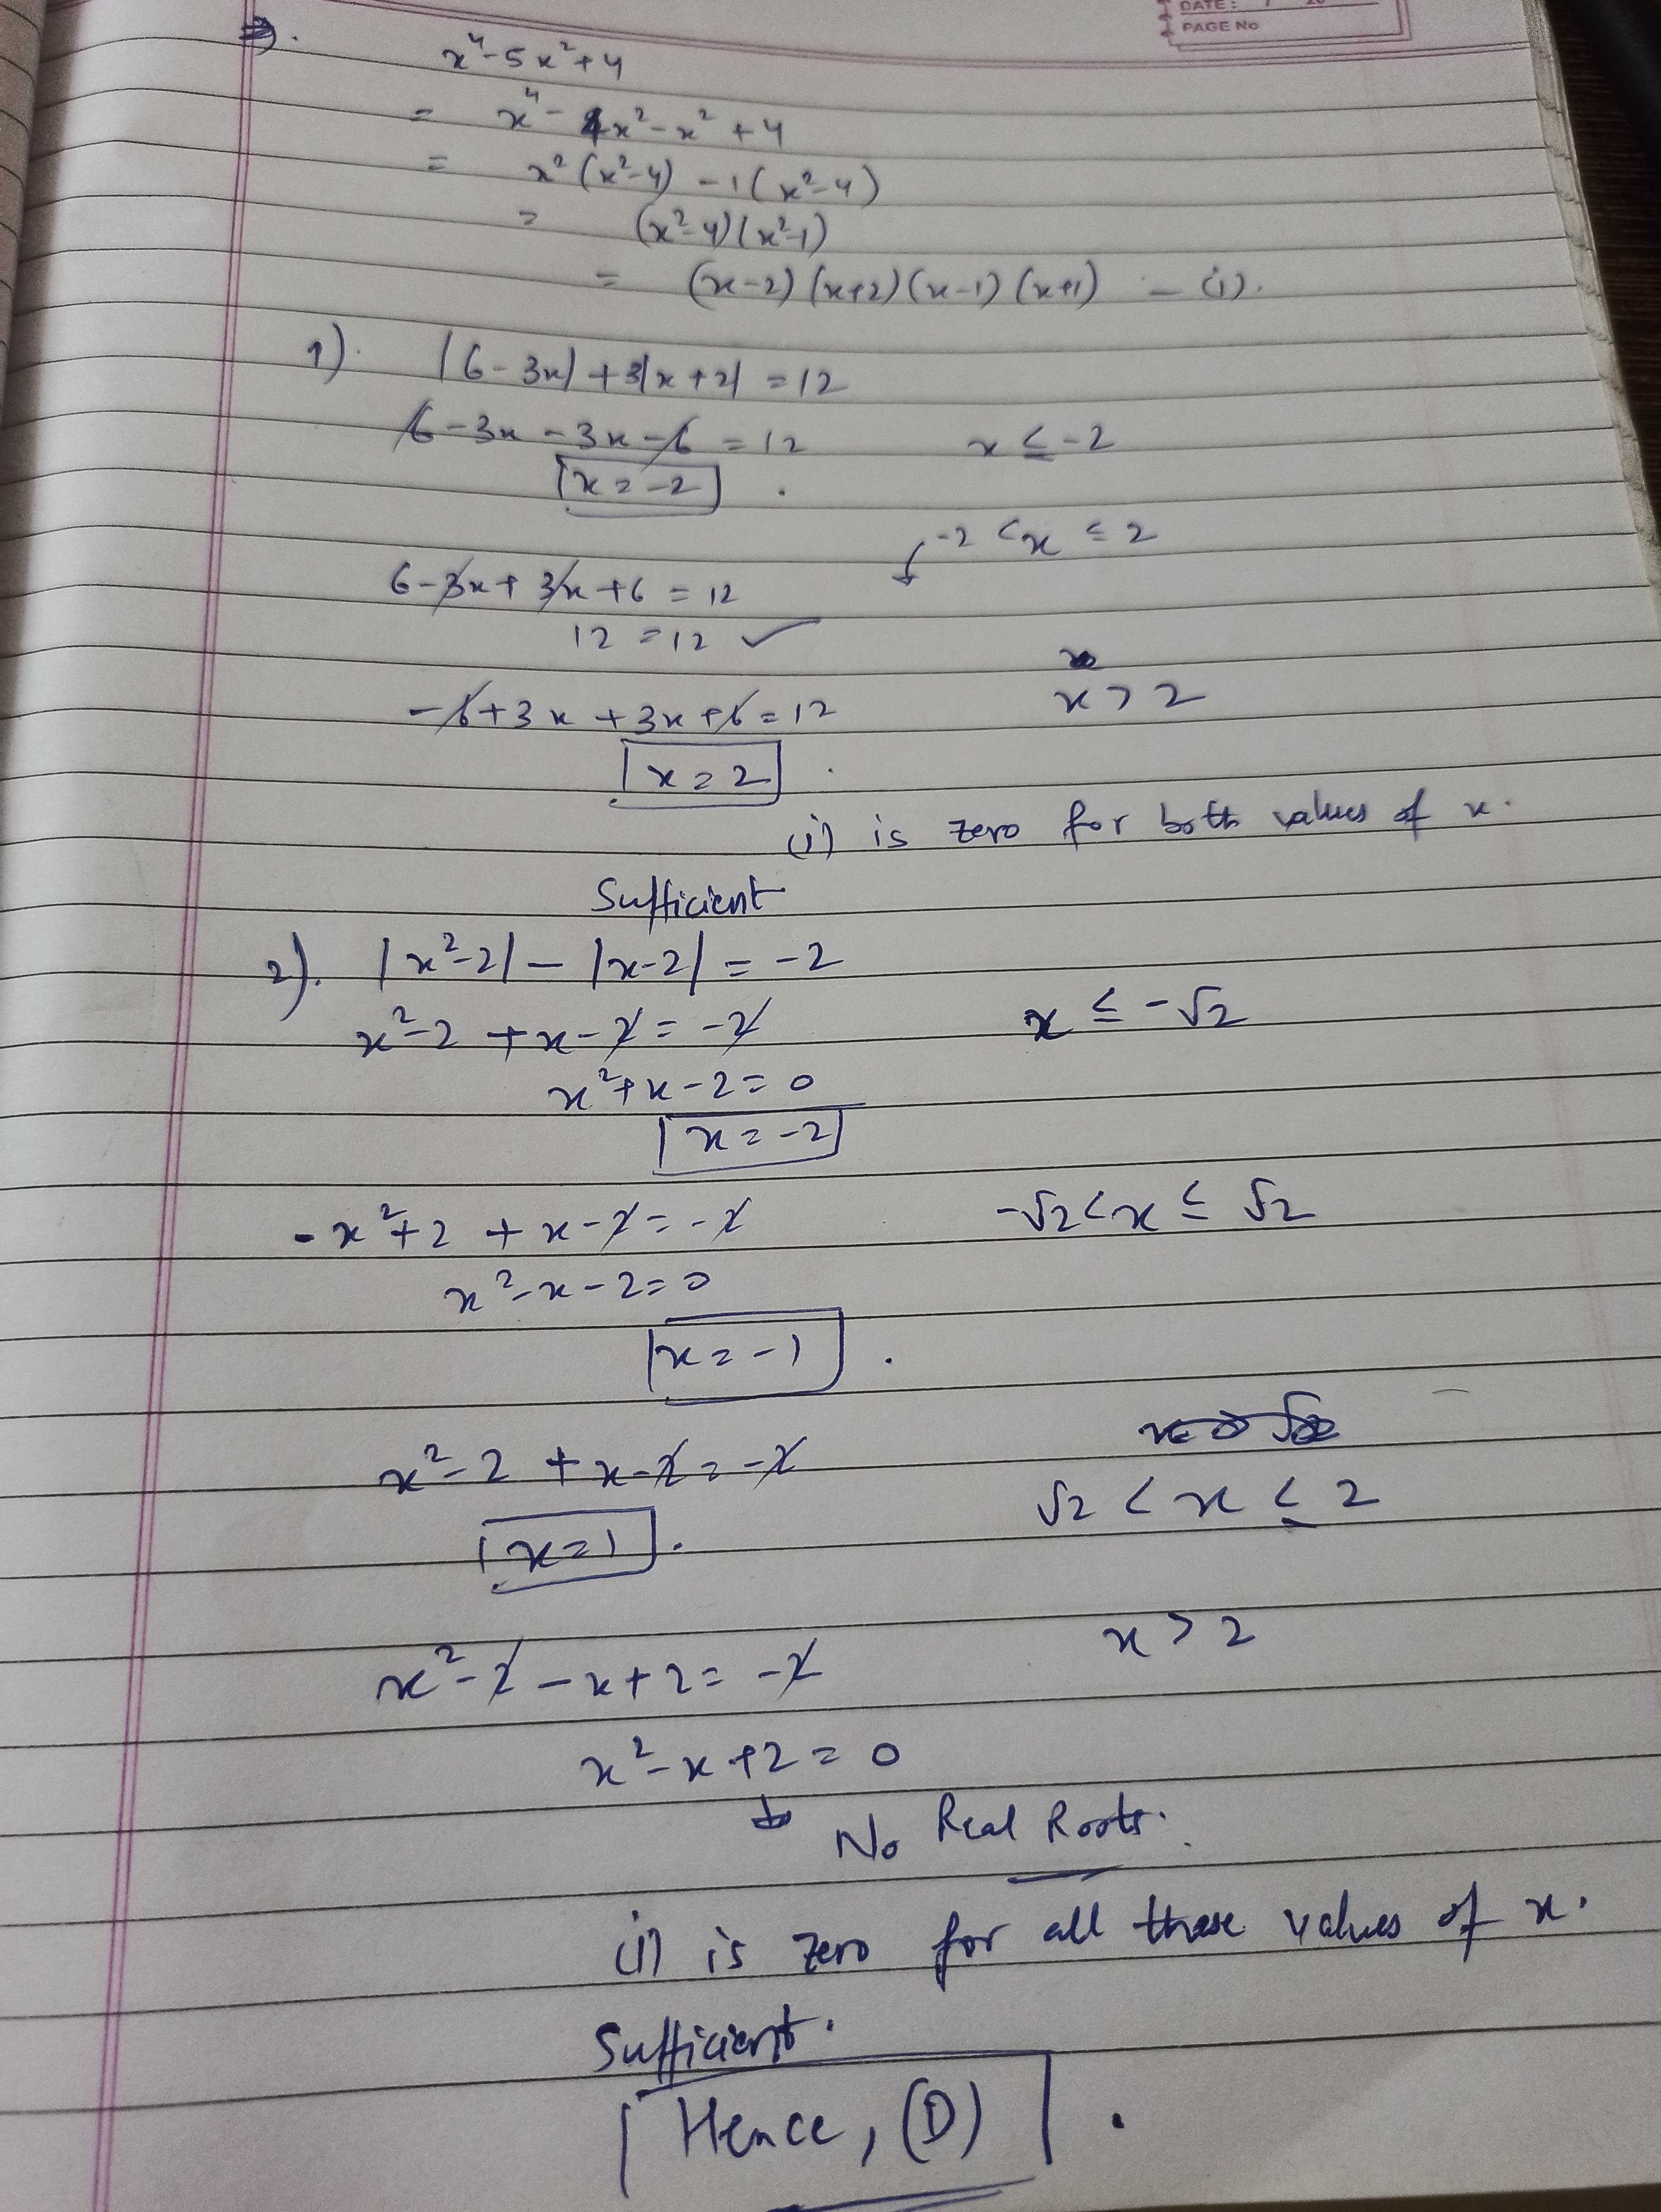 DATE: / 20
PAGE No
⇒.
x⁴-5x²+4
= x⁴ - 4x² - x² + 4
= x²(x²-4) - 1(x²-4)
= (x²-4)(x²-1)
= (x-2)(x+2)(x-1)(x+1) - (i).
1). |6-3x| + 3|x+2| = 12
6-3x-3x-6 = 12 x ≤ -2
x = -2 .
-2 < x ≤ 2
6-3x+3x+6 = 12
12 = 12 ✓
-6+3x+3x+6 = 12 x > 2
x = 2 .
(i) is zero for both values of x.
Sufficient
2). |x²-2| - |x-2| = -2
x²-2 + x-2 = -2 x ≤ -√2
x²+x-2=0
x = -2
-x²+2 + x-2 = -2 -√2 < x ≤ √2
x²-x-2=0
x = -1 .
x²-2 + x-2 = -2 √2 < x ≤ 2
x=1 .
x²-2-x+2 = -2 x > 2
x²-x+2 = 0
↓ No Real Roots.
(i) is zero for all these values of x.
Sufficient.
Hence, (D) .